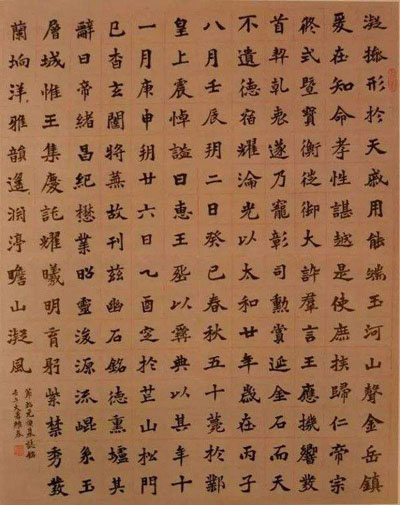 凝操形於天慼用能端玉河山聲金岳鎮
爰在知命孝性諶越是使庶族歸仁帝宗
攸式暨寶衡徙御大訊羣言王應機響發
首契乾衷遂乃寵彰司勳賞延金石而天
不遺德宿耀淪光以太和廿年歲在丙子
八月壬辰朔二日癸巳春秋五十薨於鄴
皇上震悼謚曰惠王葬以彝典以其年十
一月庚申朔廿六日乙酉窆於芒山松門
已杳玄闥將蕪故刊茲幽石銘德熏壚其
辭曰帝緒昌紀懋業昭靈浚源流崐系玉
層城惟王集慶託耀曦明育躬紫禁秀發
蘭坰洋〻雅韻遙〻淵渟瞻山凝風